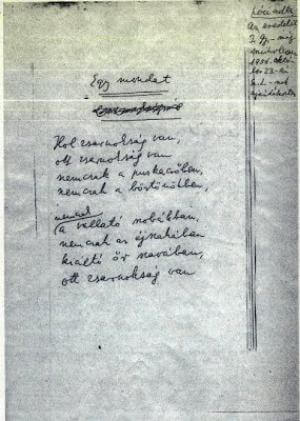 Egy mondat
Hol zsarnokság van,
ott zsarnokság van
nemcsak a puskacsőben,
nemcsak a börtönökben,
nemcsak
a vallató szobákban,
nemcsak az éjszakában
kiáltó őr szavában,
ott zsarnokság van
Az eredetit
1956. októ-
ber 23-án
ajándékozta